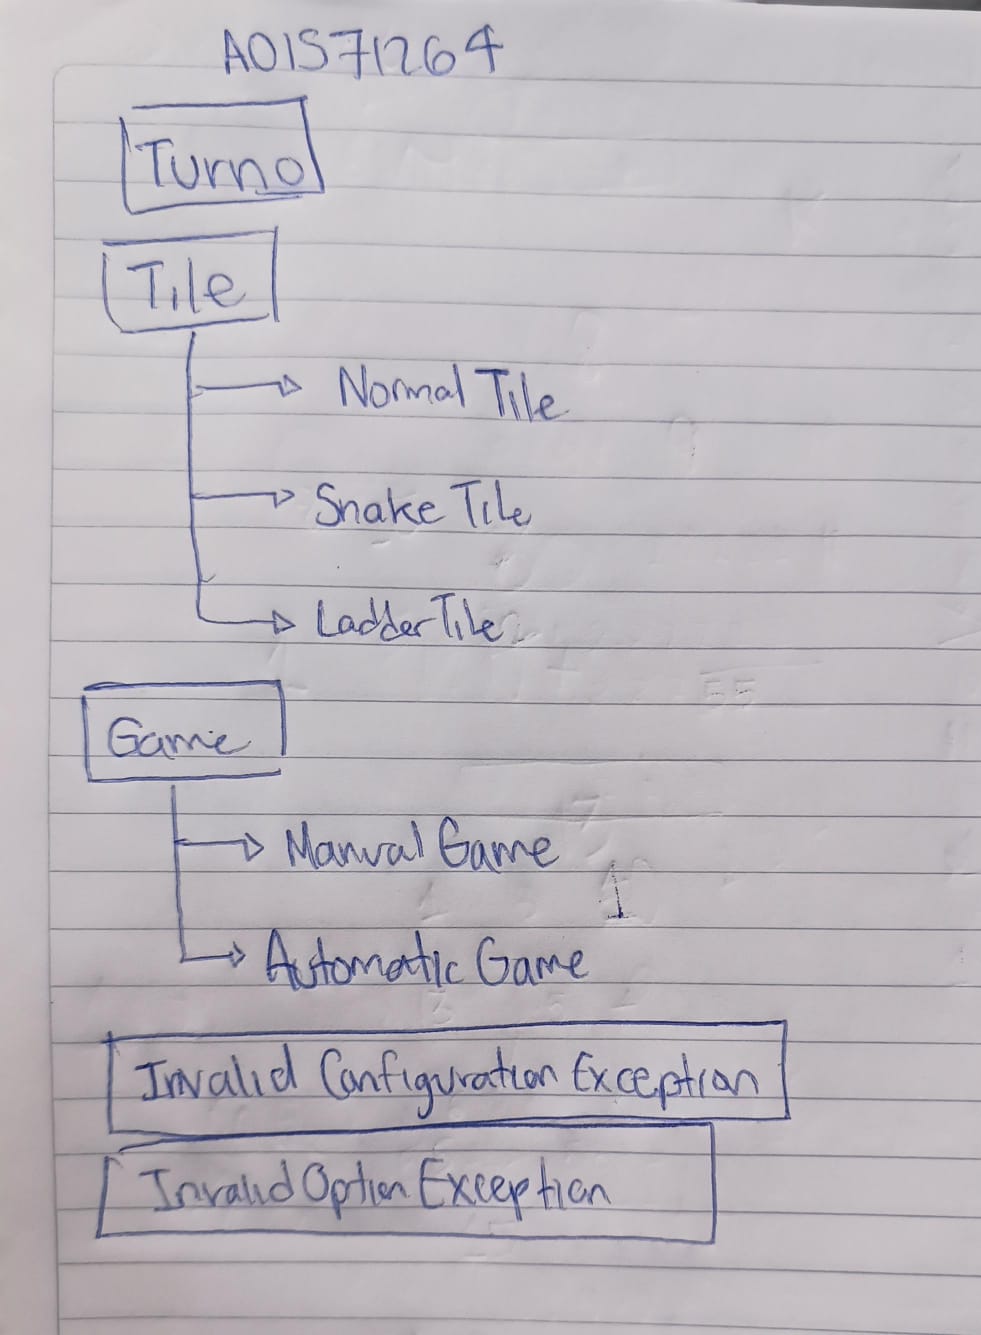 A01571264
Turno
Tile
Normal Tile
Snake Tile
Ladder Tile
Game
Manual Game
Automatic Game
Invalid Configuration Exception
Invalid Option Exception